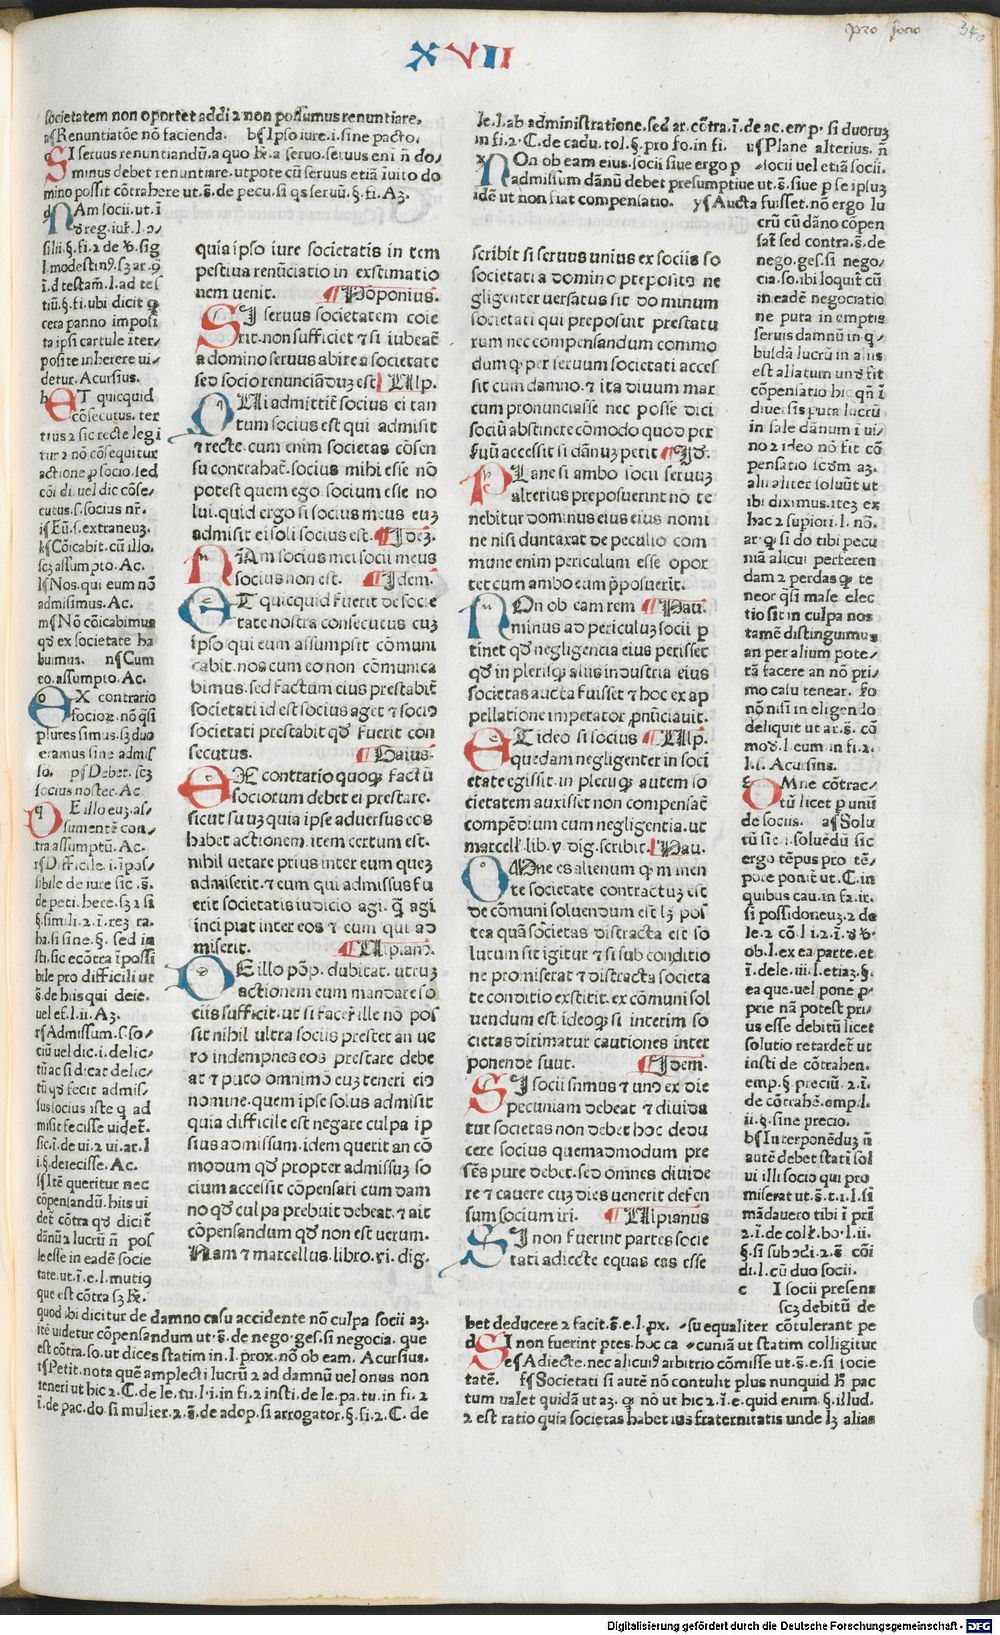 pro socio
340
XVII
societatem non oportet addi ⁊ non possumus renuntiare.
a¶Renuntiatõe nõ facienda. b¶Ipso iure.i.sine pacto.
SI seruus renuntiandũ.a quo hr̃.a seruo.seruus eni ñ do⸗
minus debet renuntiare.utpote cũ seruus etiã iuito do
mino possit cõtrahere ut.s̃.de pecu.si q̃s seruũ.§.fi.Az.
NAm socii.ut.ĩ
silii.§.fi.⁊ de v̾.sig
ĩ.d testam̃.l.ad tes
tiũ.§.fi.ubi dicit ꝙ
cera panno imposi
ta ipsi cartule iter⸗
posite inherere ui⸗
detur.Acursius.
hET quicquid
cõsecutus.ter
tius ⁊ sic recte legi
tur ⁊ nõ cõsequitur
actione ꝓ socio.sed
cõi di.uel dic cõse⸗
cutus.s.socius nr̃.
i¶Eũ.s.extraneuz.
k¶Cõicabit.cũ illo.
scz assumpto.Ac.
l¶Nos.qui eum nõ
admisimus.Ac.
m¶Nõ cõicabimus
qd̾ ex societate ha
buimus. n¶Cum
eo.assumpto.Ac.
oEX contrario
socioꝝ.nõ q̃si
plures simus.sz duo
eramus sine admis
so. p¶Debet.scz
socius noster.Ac
qDE illo euz.as⸗
sumentẽ con⸗
tra assumptũ.Ac.
r¶Difficile.i.ipos⸗
sibile de iure sic.s̃.
de peti.here.sz ⁊ si
§.simili.⁊.ĩ.rez ra.
ha.si sine.§. sed in
sti.sic ecõtra ĩpossi
bile pro difficili ut
s̃.de hiis qui deie.
uel ef.l.ii.Az.
r¶Admissum.s.so⸗
ciũ uel dic.i.delic⸗
tũ ac si dicat delic⸗
tũ qd̾ fecit admis⸗
sus socius iste q̃ ad
misit fecisse uidet̃.
sic.ĩ.de ui.⁊ ui.ar.l
i.§.deiecisse.Ac.
s¶Itẽ queritur nec
cõpensandũ.hiis ui
det̃ cõtra qd̾ dicit̃
dãnũ ⁊ lucrũ ñ pos
le esse in eadẽ socie
tate.ut.ĩ.e.l.mutiꝰ
que est cõtra sz hr̃.
quod ibi dicitur de damno casu accidente nõ culpa socii az.
itẽ uidetur cõpensandum ut.s̃.de nego.ges.si negocia. que
est cõtra.so.ut dices statim in.l.prox.nõ ob eam. Acursius.
t¶Petit.nota quẽ amplecti lucrũ ⁊ ad damnũ uel onus non
teneri ut hic ⁊.C.de le.tu.l.i.in fi.⁊ insti.de le.pa.tu.in fi.⁊
ĩ.de pac.do.si mulier.⁊.s̃.de adop.si arrogator.§.fi.⁊.C.de
quia ipso iure societatis in tem
pestiua renũciatio in exstimatio
nem uenit. ¶Põponius.
SI seruus societatem coie
rit.non sufficiet ⁊ si iubeat̃
a domino seruus abire a societate
sed socio renunciãduz est ¶Ulp.
QUi admittit̃ socius ei tan
tum socius est qui admisit
⁊ recte.cum enim societas cõsen
su contrahat̃.socius mihi esse nõ
potest quem ego socium esse no
lui.quid ergo si socius meus euz
admisit ei soli socius est.¶Idez.
NÃm socius mei socii meus
socius non est. ¶Idem.
ET quicquid fuerit de socie
tate nostra consecutus cuz
ipso qui eum assumpsit cõmuni
cabit.nos cum eo non cõmunica
bimus.sed factum eius prestabit̃
societati id est socius aget ⁊ socio
societati prestabit qd̾ fuerit con
secutus. ¶Gaius.
EX contratio quoqꝫ factũ
sociorum debet ei prestare.
sicut suuz quia ipse aduersus eos
habet actionem.item certum est.
nihil uetare prius inter eum quez
admiserit.⁊ cum qui admissus fu
erit societatis iudicio agi.q̃ agi
incipiat inter eos ⁊ eum qui ad
miserit. ¶Ulpianꝰ.
DE illo põp.dubitat.utruz
actionem eum mandare so
ciis sufficit.ut si facer̃ ille nõ pos
sit nihil ultra sociis prestet an ue
ro indempnes eos prestare debe
at ⁊ puto omnimõ euz teneri eiꝰ
nomine.quem ipse solus admisit
quia difficile est negare culpa ip
sius admissum.idem querit an cõ
modum qd̾ propter admissuz so
cium accessit cõpensari cum dam
no qd̾ culpa prebuit debeat.⁊ ait
cõpensandum qd̾ non est uerum.
Nam ⁊ marcellus.libro.vi.dig.
le.l.ab administratione.sed ar.cõtra.ĩ.de ac.emp.si duoruz
in fi.⁊.C.de cadu.tol.§.pro fo.in fi. u¶Plane alterius.ñ
xNOn ob eam eius.socii siue ergo p ⸗socii uel etiã socii.
admissum dãnũ debet presumptiue ut.s̃.siue p se ipsuz
idẽ ut non fiat compensatio. y¶Aucta fuisset.nõ ergo lu
crũ cũ dãno cõpen
sat̃ sed contra.s̃.de
nego.ges.si nego⸗
cia.so.ibi loquit̃ cũ
in eadẽ negociatio
ne puta in emptis
seruis damnũ in q⸗
busdã lucrũ in aliis
est allatum und̾ fit
cõpensatio hic qñ ĩ
diuersis puta lucrũ
in sale dãnum i ui⸗
no ⁊ ideo nõ fit cõ
pensatio scdm az.
alii aliter soluũt ut
ibi diximus.itez ex
hac ⁊ supiori.l. nõ.
ar.ꝙ si do tibi pecu
niã alicui perteren
dam ⁊ perdas ꝙ te
neor q̃si male elec
tio sit in culpa nos
tamẽ distinguimus
an per alium pote⸗
tã facere an nõ pri⸗
mo casu tenear. so
nõ nisi in eligendo
deliquit ut ar.s̃.cõ
mod̾.l.eum.in fi.⁊.
l.i.Acursius.
zOMne cõtrac⸗
tũ licet p unũ
de sociis. a¶Solu
tũ sit.i.soluẽdũ sic
ergo tẽpus pro tẽ⸗
pore ponit̃ ut.C.in
quibus cau.in fa.it̃.
si possidoneuz.⁊ de
le.⁊ cõ.l.i.⁊.ĩ.d̾ v̾.
ob.l.ex ea parte.et
ĩ.dele.iii.l.etiaz.§.
ea que.uel pone ꝓ⸗
prie nã potest pri⸗
us esse debitũ licet
solutio retardet̃ ut
insti de cõtrahen.
emp.§ preciũ.⁊.ĩ.
de cõtrahẽ.emp.l.
ii.§.sine precio.
b¶Interponẽduz ñ
autẽ debet stati sol
ui illi socio qui pro
miserat ut.s̃.t.i.l.si
mãdauero tibi ĩ pri
⁊.ĩ.de col̃.bo.l.ii.
§.si sub cõdi.⁊.s̃. cõi
di.l.cũ duo socii.
c I socii presens
scz debitũ de
scribit si seruus unius ex sociis so
societati a domino preposito ne
gligenter uersatus sit do minum
societati qui preposuit prestatu
rum nec compensandum commo
dum ꝙ per seruum societati acces
sit cum damno.⁊ ita diuum mar
cum pronunciasse nec posse dici
sociũ abstinere cõmodo quod per
fuũ accessit si dãnuz petit ¶Id̾.
PLane si ambo socii seruuz
alterius preposuerint nõ te
nebitur dominus eius eius nomi
ne nisi duntaxat de peculio com
mune enim periculum esse opor
tet cum ambo eum p̃posuerit.
NOn ob eam rem ¶Pau.
minus ad periculuz socii p
tinet qd̾ negligencia eius perisset
qd̾ in plerisqꝫ aliis industria eius
societas aucta fuisset ⁊ hoc ex ap
pellatione imperator p̃nũciauit.
ET ideo si socius ¶Ulp.
quedam negligenter in soci
etate egissit.in plerisqꝫ autem so
cietatem auxisset non compensat̃
compẽdium cum negligentia.ut
marcell̾.lib.v.dig.scribit.¶Pau.
OMne es alienum ꝙ manen
te societate contractuz est
de cõmuni soluendum est lz pos
tea quã societas distracta est so
lutum sit igitur ⁊ si sub conditio
ne promiserat ⁊ distracta societa
te conditio exstitit.ex cõmuni sol
uendum est.ideoqꝫ si interim so
cietas dirimatur cautiones inter
ponende sunt. ¶Idem.
SI socii sumus ⁊ unꝰ ex die
pecuniam debeat ⁊ diuida
tur societas non debet hoc dedu
cere socius quemadmodum pre
sẽs pure debet.sed omnes diuide
re ⁊ cauere cuz dies uenerit defen
sum socium iri. ¶Ulpianus
SI non fuerint partes socie
tati adiecte equas eas esse
bet deducere ⁊ facit.s̃.e.l.px. ⸗su equaliter cõtulerant pe
dSI non fuerint pres.hoc ca ⸗cuniã ut statim colligitur
e¶Adiecte.nec alicuiꝰ arbitrio cõmisse ut.s̃.e.si socie
tatẽ. f¶Societati si autẽ nõ contulit plus nunquid hr̃ pac
tum ualet quidã ut az. ꝙ nõ ut hic ⁊.ĩ.e.quid enim.§.illud.
⁊ est ratio quia societas habet ius fraternitatis unde lz alias
Digitalisierung gefördert durch die Deutsche Forschungsgemeinschaft - DFG